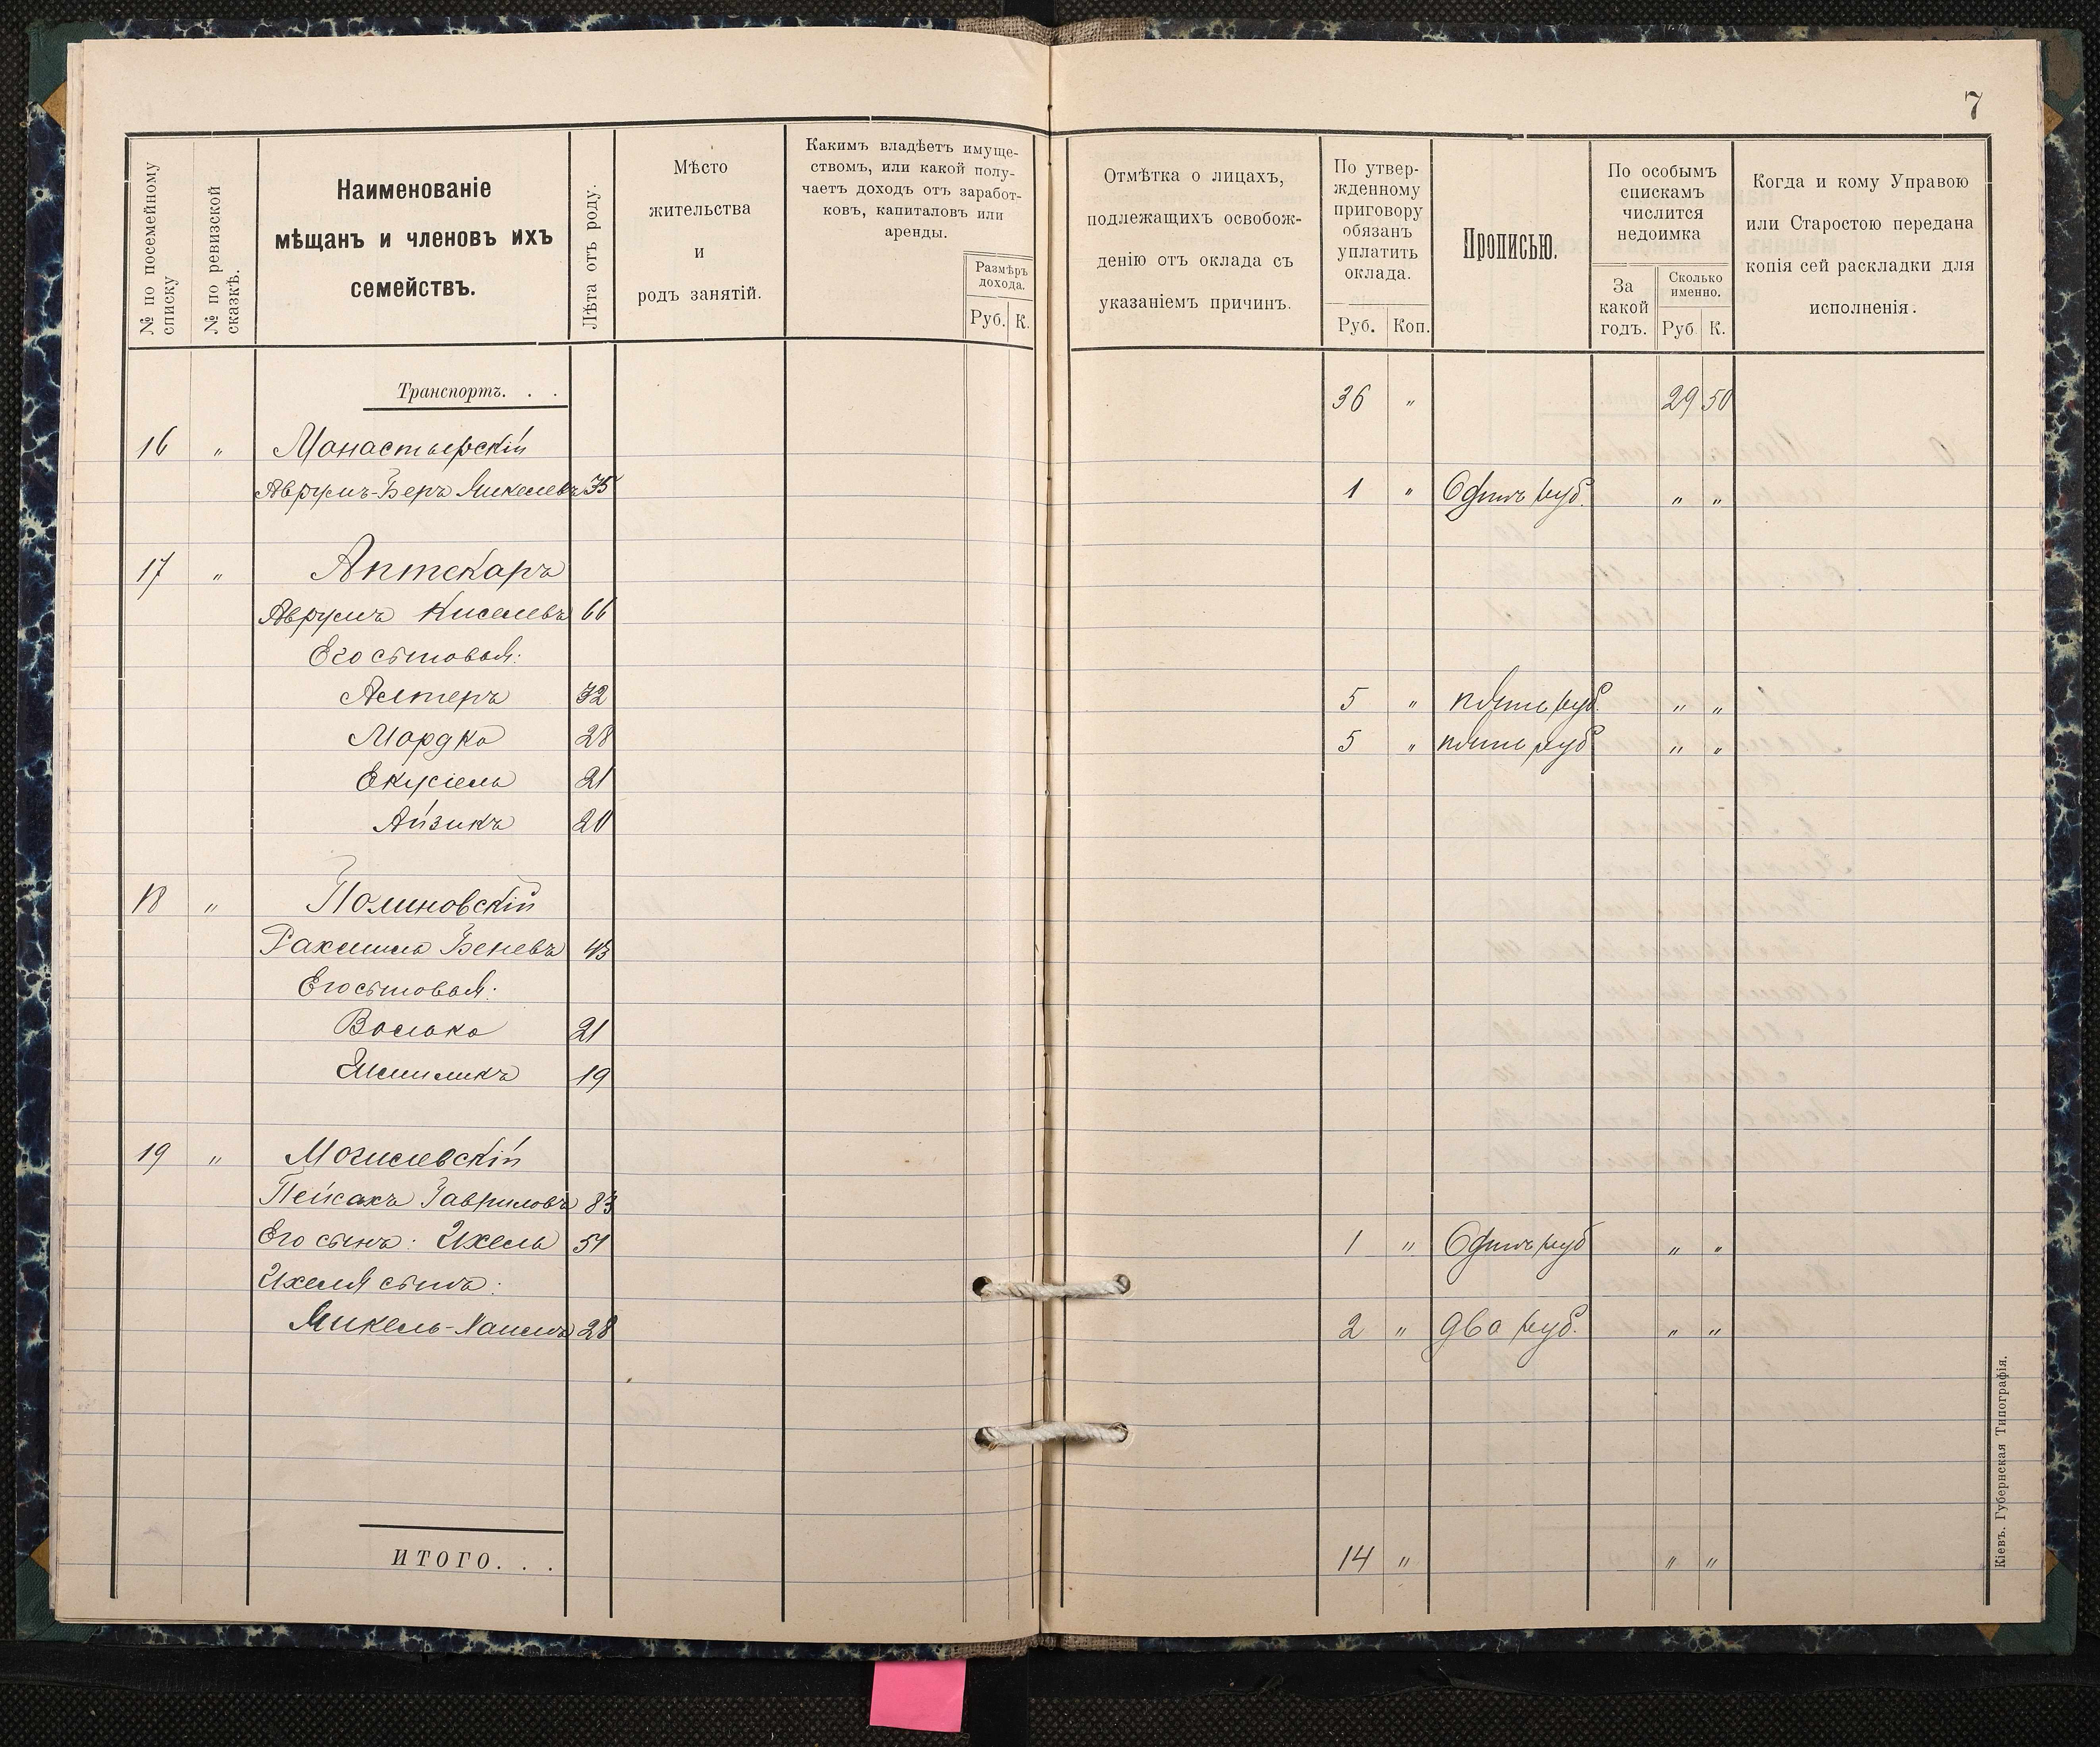 7
№ по посемейному списку
№ по ревизской сказкѣ.
Наименованіе
мѣщанъ и членовъ ихъ
семействъ.
Лѣта отъ роду.
Мѣсто
жительства
и
родъ занятій.
Какимъ владѣетъ имуще-
ствомъ, или какой полу-
чаетъ доходъ отъ заработ-
ковъ, капиталовъ или
аренды.
Размѣръ
дохода.
Руб. К.
Отмѣтка о лицахъ,
подлежащихъ освобож-
денію отъ оклада съ
указаніемъ причинъ.
По утвер-
жденному
приговору
обязанъ
уплатить
оклада.
Руб. Коп.
Прописью.
По особымъ
спискамъ
числится
недоимка
За
какой
годъ.
Сколько
именно.
Руб К.
Когда и кому Управою
или Старостою передана
копія сей раскладки для
исполненія.
Транспортъ. . . 36 „ 29 50
16 „ Монастырскій
Аврумъ-Беръ Микелевъ 35 1 „ Одинъ руб. „ „
17 „ Аптекаръ
Аврумъ Киселевъ 66
Его сыновья:
Алтеръ 32 5 „ пять руб. „ „
Мордко 28 5 „ пять руб „ „
Екусіель 21
Айзикъ 20
18 „ Полиновскій
Рахмиль Беневъ 43
Его сыновья:
Волько 21
Шмиликъ 19
19 „ Могилевскій
Пейсахъ Гавриловъ 83
Его сынъ: Ихель 51 1 „ Одинъ руб „ „
Ихеля сынъ:
Микель-Хаимъ 28 2 „ два руб. „ „
ИТОГО. . . 14 „ „ „
Кіевъ. Губернская Типографія.